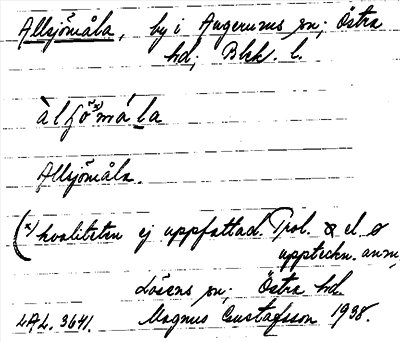 Allsjömåla, by i Augerums sn; Östra
hd; Blek. l.
àlʃö̆ˣ⁾mǻla
Allsjömåla.
(ˣ⁾ kvaliteten ej uppfattad. Trol. œ el ø
uppteckn. anm,
Lösens sn; Östra hd
LAL. 3641. Magnus Gustafsson 1938.